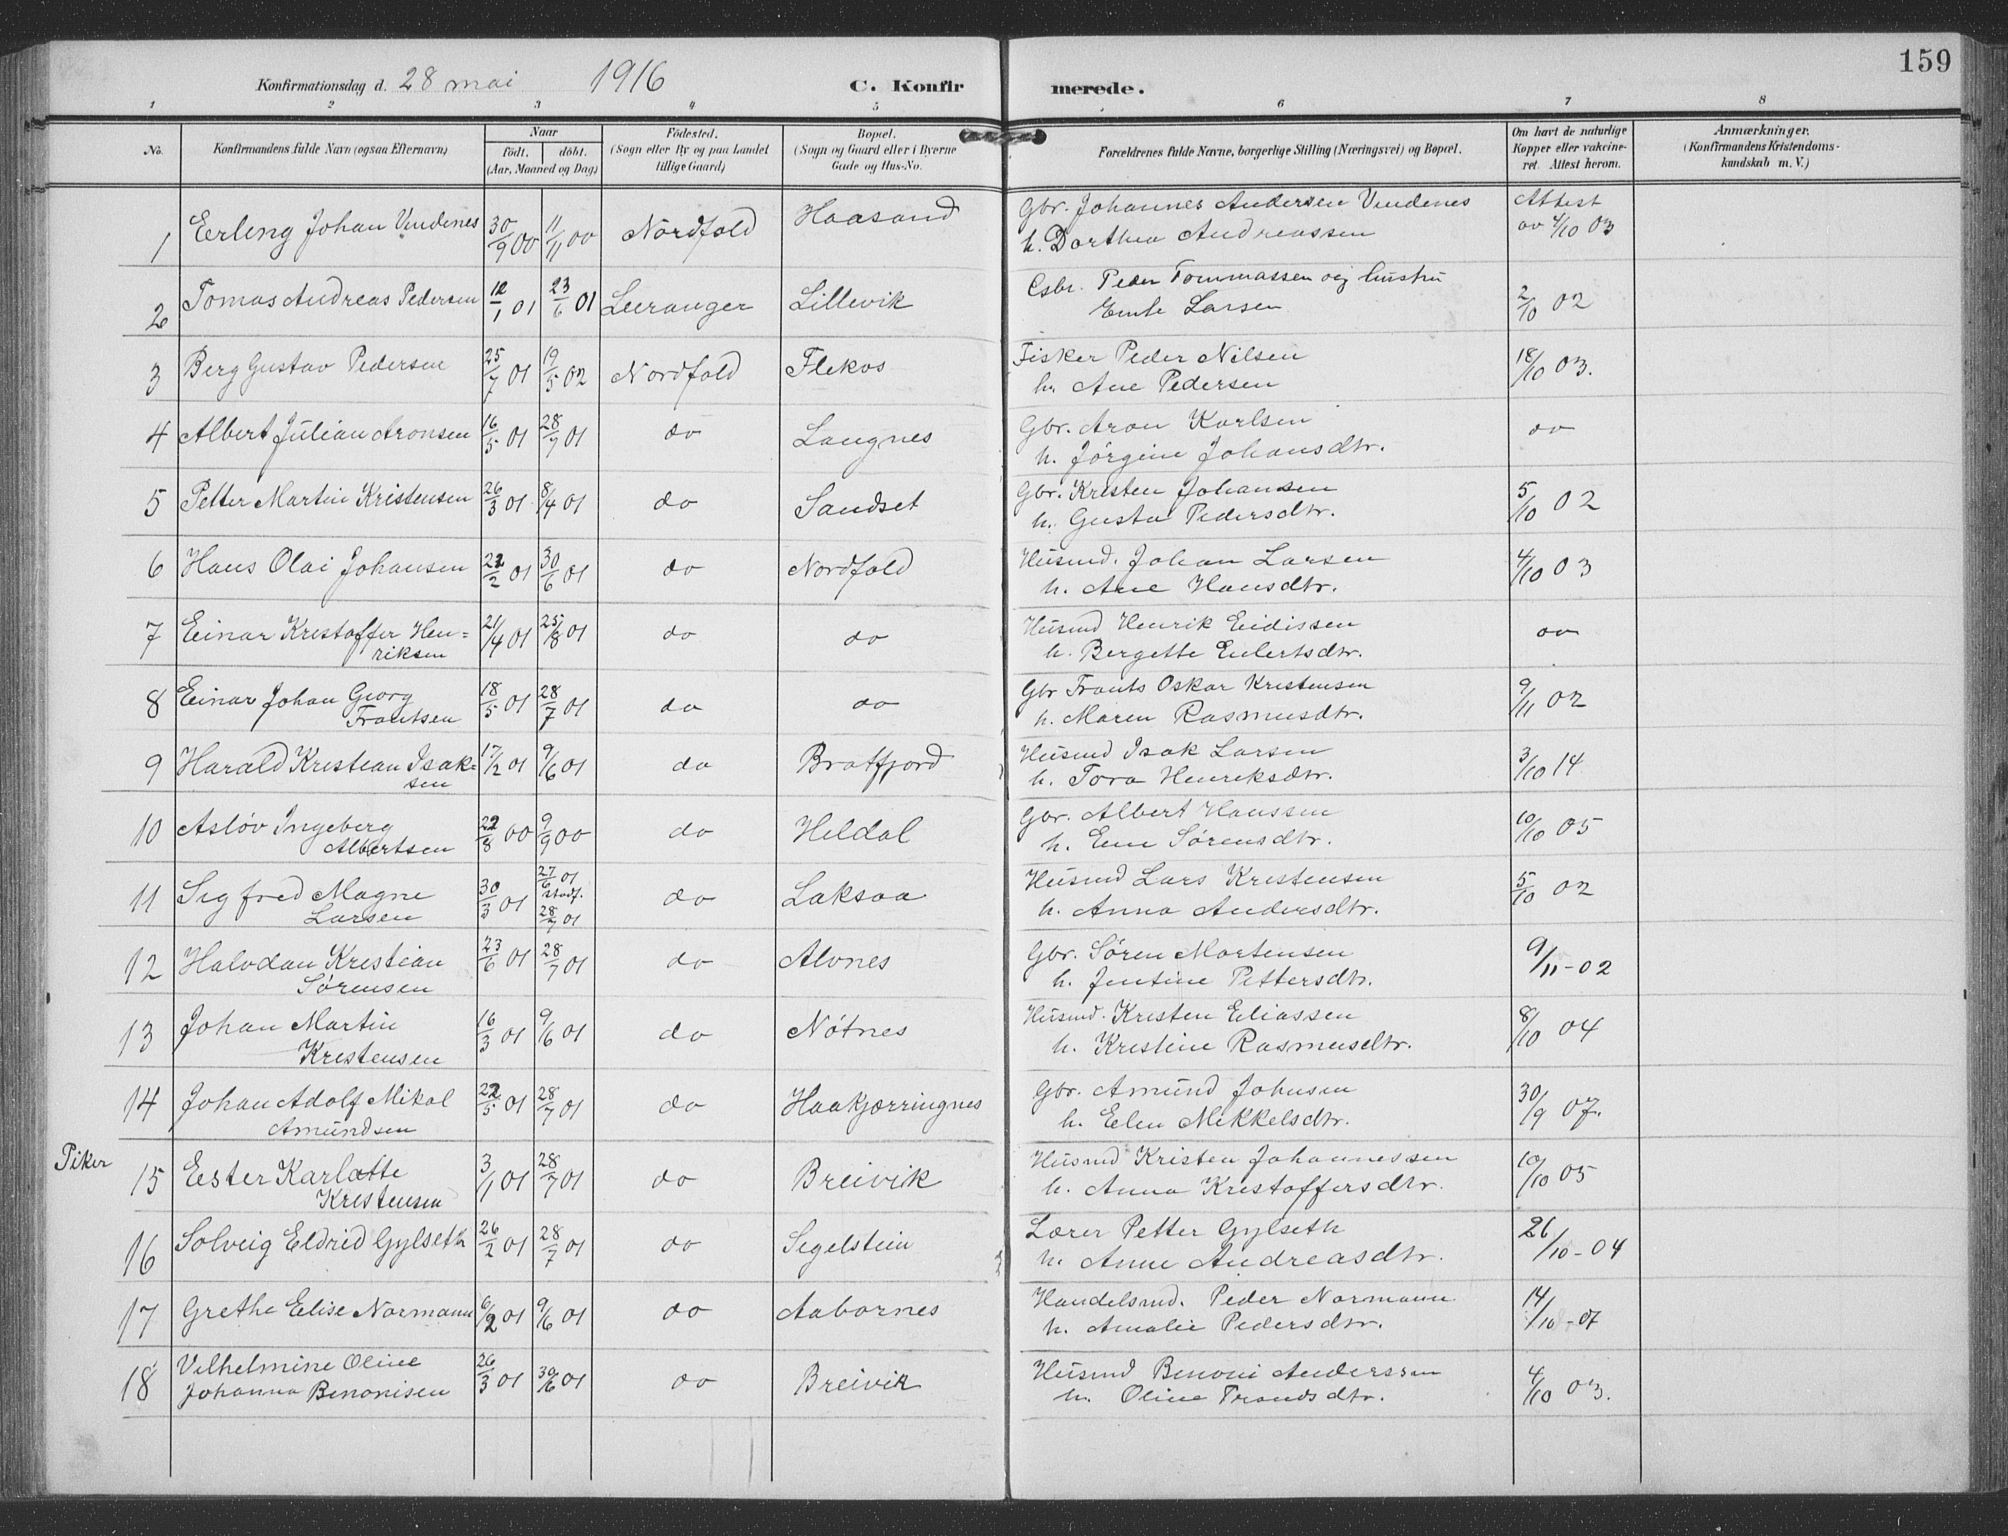 159
Konfirmationsdag d. 28 mai 1916 C. Konfirmerede.
1 2 3 4 5 6 7 8
No. Konfirmandens fulde Navn (ogsaa Efternavn) Naar födt. döbt. (Aar, Maaned og Dag) Födested. (Sogn eller By og paa Landet tillige Gaard) Bopæl. (Sogn og Gaard eller i Byerne Gade og Hus-No. Forældrenes fulde Navne, borgerlige Stilling (Næringsvei) og Bopæl. Om havt de naturlige Kopper eller vakcineret. Attest herom. Anmærkninger. (Konfirmandens Kristendomskundskab m. V.)
1 Erling Johan Vindenes 30/9 00 11/11 00 Nordfold Haasand Gbr. Johannes Andersen Vindenes Attest
h. Dorthea Andreassen av 4/10 03
2 Tomas Andreas Pedersen 12/1 01 23/6 01 Leiranger Lillevik Gbr. Peder Tommassen og hustru 2/10 02
Larsen
3 Berg Gustav Pedersen 25/7 01 19/5 02 Nordfold Flekos Fisker Peder Nilsen 18/10 03.
h. Ane Pedersen
4 Albert Julian Aronsen 16/5 01 28/7 01 do Langnes Gbr. Aron Karlsen do
h. Jørgine Johansdtr.
5 Petter Martin Kristensen 26/3 01 8/4 01 do Sandset Gbr. Kristen Johansen 5/10 02
h. Gusta Pedersdtr.
6 Hans Olai Johansen 22/2 01 30/6 01 do Nordfold Husmd. Johan Larsen 4/10 03
h. Ane Hansdtr.
7 Einar Kristoffer Hen= 21/4 01 25/8 01 do do Husmd Henrik Eidissen do
riksen h. Bergette Eilertsdtr.
8 Einar Johan Georg 18/5 01 28/7 01 do do Gbr Frants Oskar Kristensen 9/11 02
Frantsen h. Maren Rasmusdtr.
9 Harald Kristian Isak- 17/2 01 9/6 01 do Bratfjord Husmd Isak Larsen 3/10 14
sen h. Tora Henriksdtr.
10 Asløv Ingeberg 22/8 00 9/9 00 do Heldal Gbr. Albert Hanssen 10/10 05
Albertsen h. Sørensdtr.
11 Sigfred Magne 30/3 01 27/6 01 stadf. 28/7 01 do Laksaa Husmd Lars Kristensen 5/10 02
Larsen h. Anna Andersdtr.
12 Halvdan Kristian 23/6 01 28/7 01 do Alvnes Gbr. Søren Mortensen 9/11-02
Sørensen h. Jentine Pettersdtr.
13 Johan Martin 16/3 01 9/6 01 do Nøtnes Husmd. Kristen Eliassen 8/10 04
Kristensen h. Kristine Rasmusdtr.
14 Johan Adolf Mikal 22/5 01 28/7 01 do Haakjærringnes Gbr. Amund Johnsen 30/9 07.
Amundsen h. Elen Mikkelsdtr.
Piker
15 Ester Karlotte 3/1 01 28/7 01 do Breivik Husmd Kristen Johannessen 10/10 05
Kristensen h. Anna Kristoffersdtr.
16 Solveig Eldrid Gylseth 26/2 01 28/7 01 do Segelstein Lærer Petter Gylseth 26/10-04
h. Anne Andreasdtr.
17 Grethe Elise Normann 6/2 01 9/6 01 do Aabornes Handelsmd. Peder Normann 14/10-07
h. Amalie Pedersdtr.
18 Vilhelmine Oline 26/3 01 30/6 01 do Breivik Husmd Benoni Anderssen 4/10 03.
Johanna Benonisen h. Oline Trondsdtr.